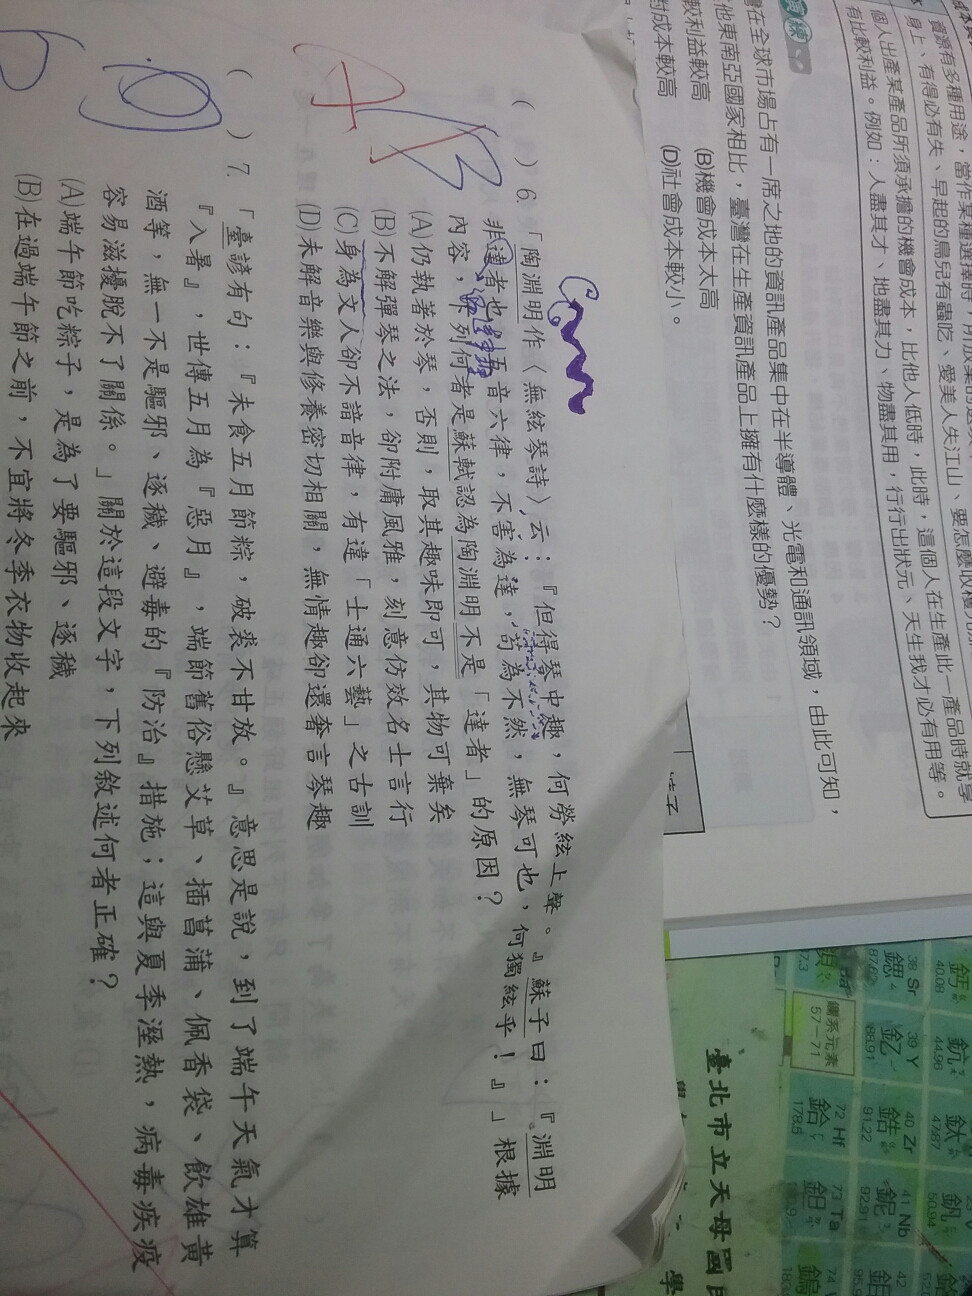 資源有多種用途，當作某種選擇時，所放棄的
身上、有得必有失、早起的鳥兒有蟲吃、愛美人失江山、要怎麼收穫先
個人出產某產品所須承擔的機會成本 比他人低時，此時，這個人在生產此一產品時就享
有比較利益。例如：人盡其才、地盡其力、物盡其用，行行出狀元、天生我才必有用等。
在全球市場占有一席之地的資訊產品集中在半導體、光電和通訊領域，由此可知，
他東南亞國家相比，臺灣在生產資訊產品上擁有什麼樣的優勢？
較利益較高 (B)機會成本太高
成本較高 (D)社會成本較小。
( ) 6. 「陶淵明作〈無絃琴詩〉云：『但得琴中趣，何勞絃上聲。』蘇子曰：『淵明
非達者也，五音六律，不害為達，苟為不然，無琴可也，何獨絃乎！』」根據
內容，下列何者是蘇軾認為陶淵明不是「達者」的原因？
(A)仍執著於琴，否則，取其趣味即可，其物可棄矣
(B)不解彈琴之法，卻附庸風雅，刻意仿效名士言行
(C)身為文人卻不諳音律，有違「士通六藝」之古訓
(D)未解音樂與修養密切相關，無情趣卻還奢言琴趣
A B
( ) 7. 「臺諺有句：『未食五月節粽，破裘不甘放。』意思是說，到了端午天氣才算
『入暑』，世傳五月為『惡月』，端節舊俗懸艾草、插菖蒲、佩香袋、飲雄黃
酒等，無一不是驅邪、逐穢、避毒的『防治』措施；這與夏季溼熱，病毒疾疫
容易滋擾脫不了關係。」關於這段文字，下列敘述何者正確？
(A)端午節吃粽子，是為了要驅邪、逐穢
(B)在過端午節之前，不宜將冬季衣物收起來
臺北市立天母國
學
40.08
鈧
44.96
鈦
47.87
釩
50.94
38 Sr
鍶
39 Y
釔
88.91
40 Zr
鋯
91.22
41 Nb
鈮
92.91
42
鑭系元素
57－71
72 Hf
鉿
178.5
73 Ta
鉭
74
鎢